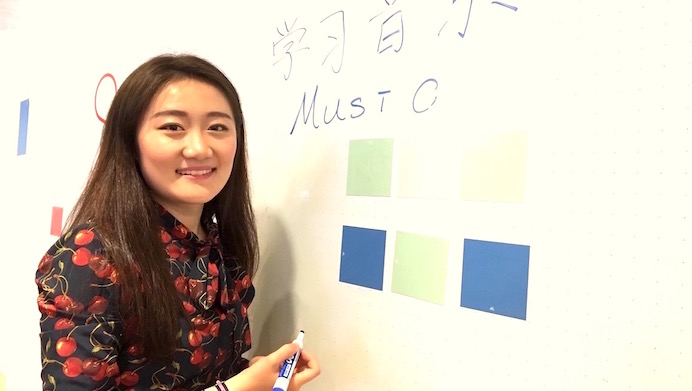 学习音乐
MUST C